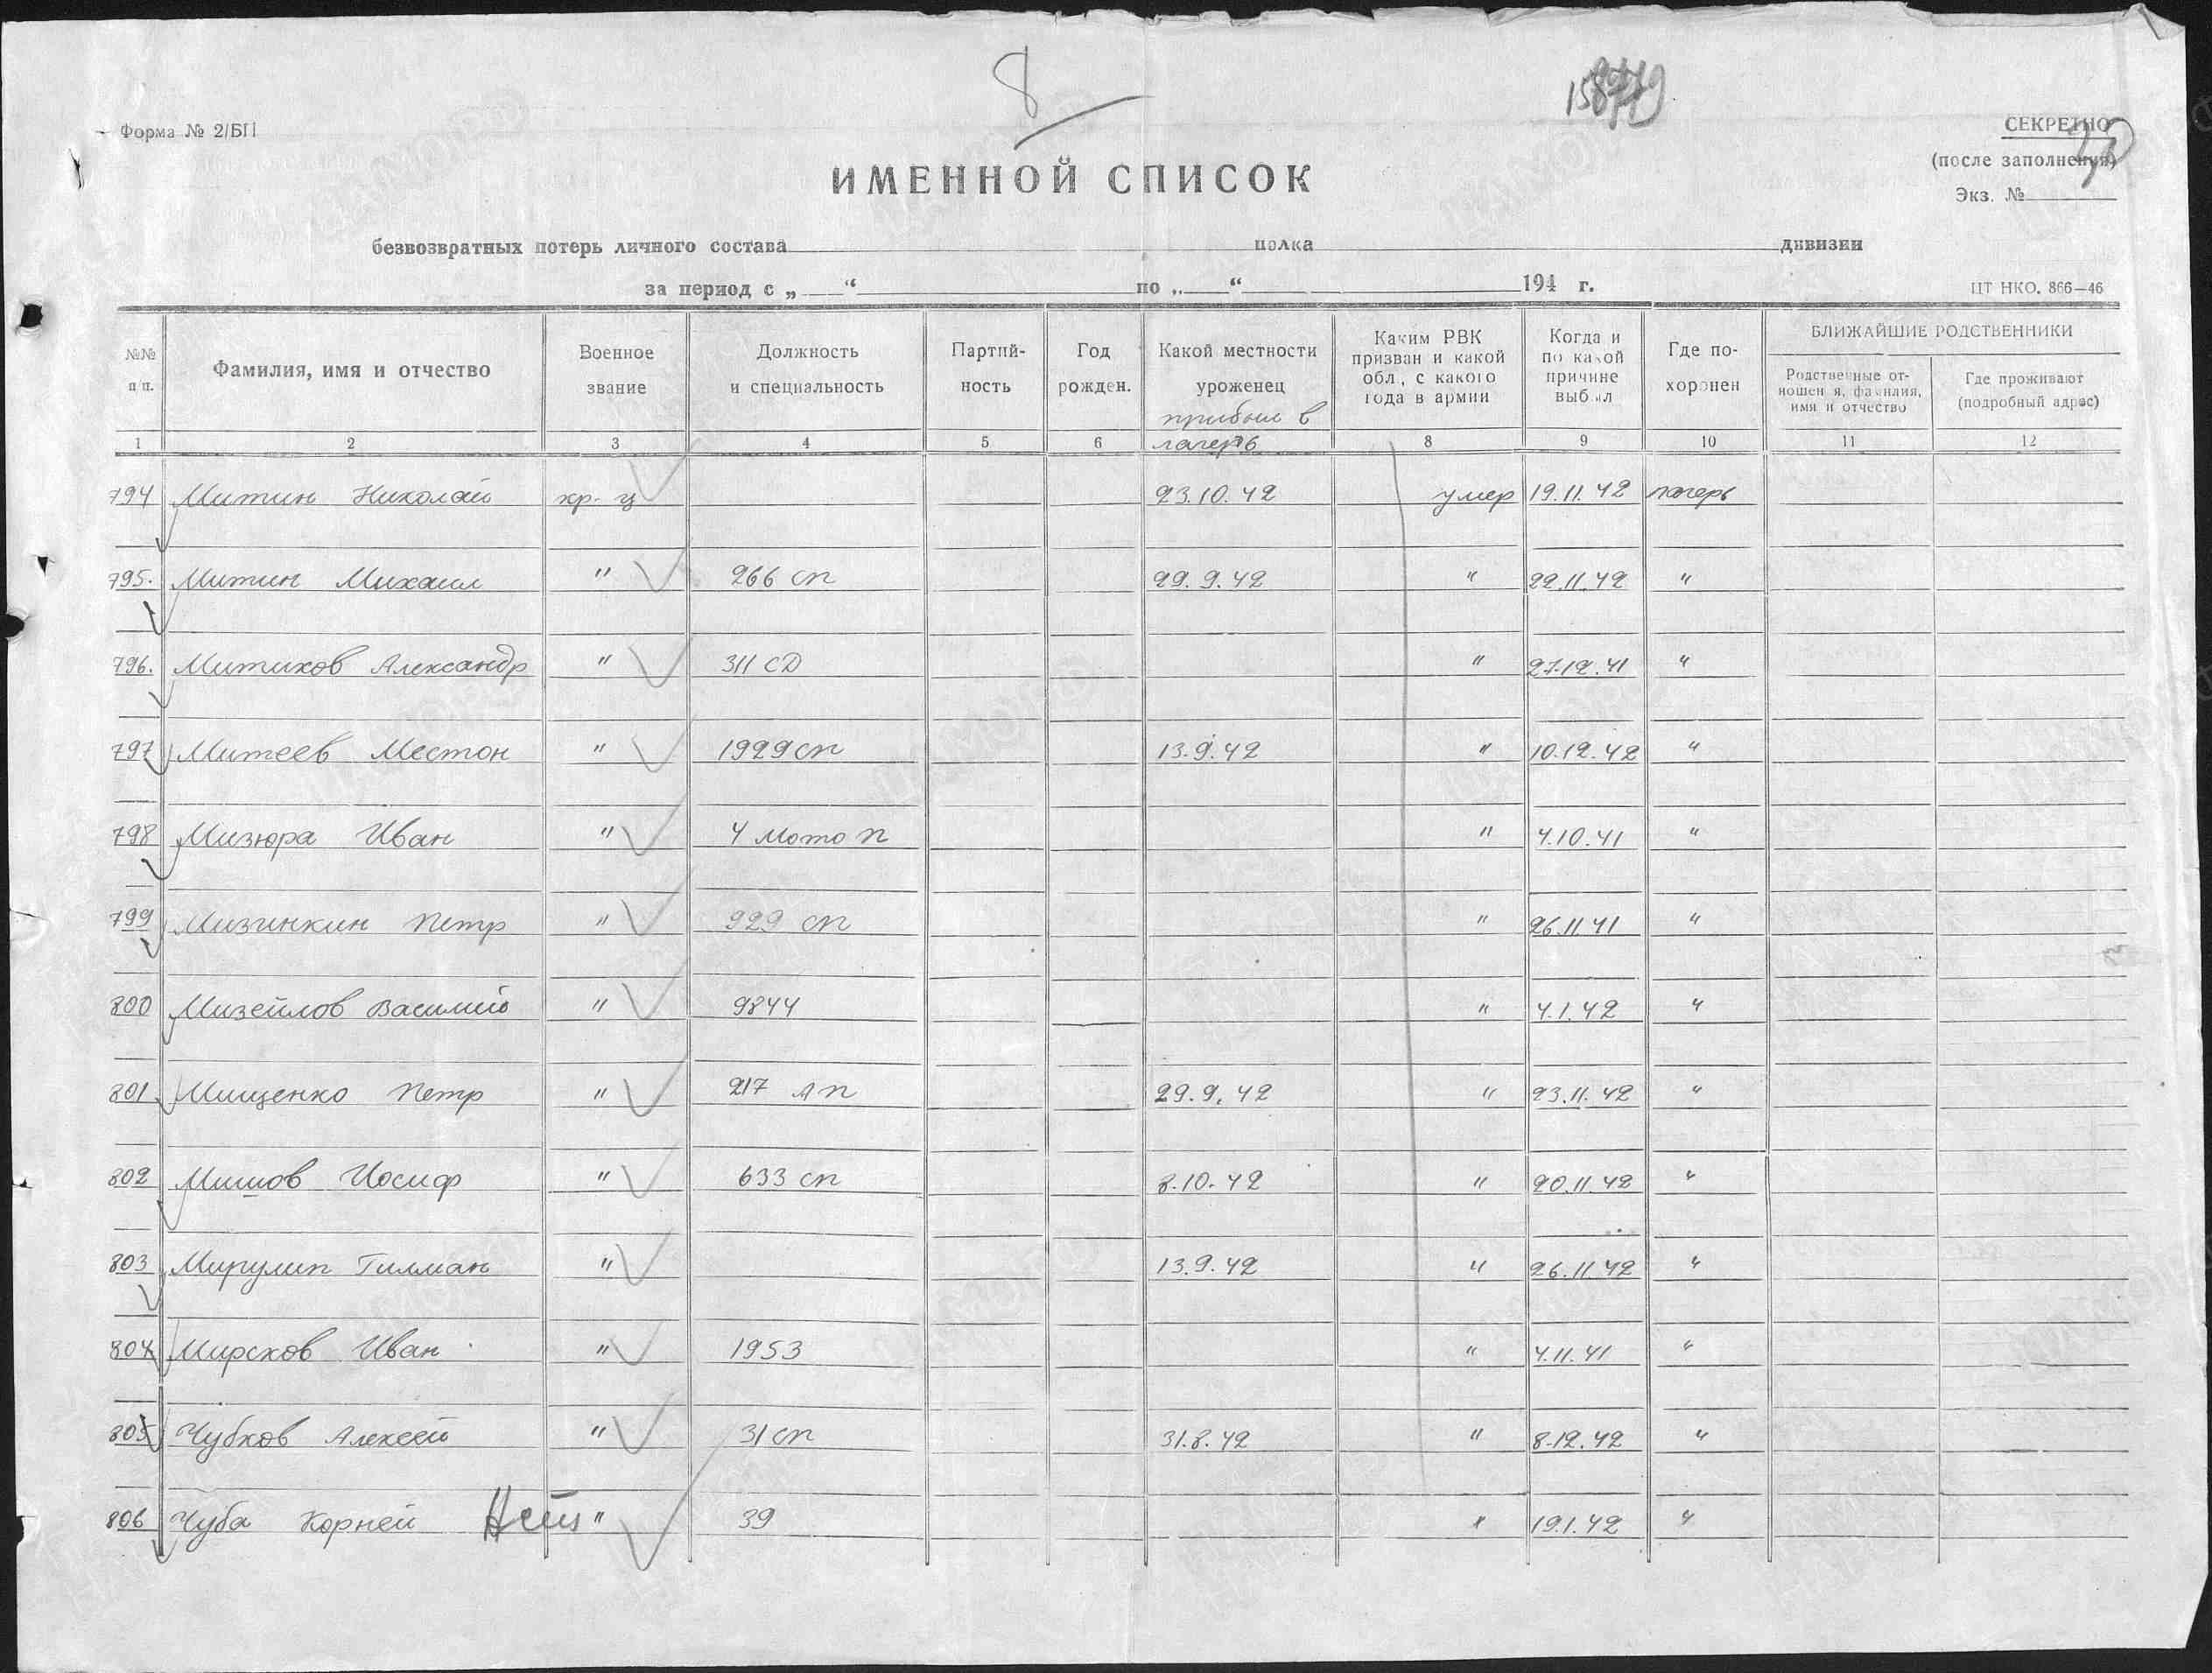 8
Форма № 2/БП
СЕКРЕТНО
(после заполнения)
Экз. №
ИМЕННОЙ СПИСОК
безвозвратных потерь личного состава полка дивизии
за период с „ “ по „ “ 194 г.
ЦТ НКО. 866—46
№№ п/п. Фамилия, имя и отчество Военное звание Должность и специальность Партийность Год рожден. Какой местности уроженец прибыл в лагерь Каким РВК призван и какой обл., с какого года в армии Когда и по какой причине выбыл Где похоронен БЛИЖАЙШИЕ РОДСТВЕННИКИ Родственные отношения, фамилия, имя и отчество Где проживают (подробный адрес)
1 2 3 4 5 6 8 9 10 11 12
794 Митин Николай кр-ц 23.10.42 умер 19.11.42 лагерь
795. Митин Михаил " 266 сп 29.9.42 " 22.11.42 "
796. Митиков Александр " 311 СД " 27.12.41 "
797 Митеев Местон " 1929 сп 13.9.42 " 10.12.42 "
798 Мизюра Иван " 4 мото п " 4.10.41 "
799 Мизинкин Петр " 929 сп " 26.11.41 "
800 Мизейлов Василий " 9844 " 4.1.42 "
801 Мищенко Петр " 217 ап 29.9.42 " 23.11.42 "
802 Мишов Иосиф " 633 сп 8.10.42 " 20.11.42 "
803 Мирулин Гилман " 13.9.42 " 26.11.42 "
804 Мирсков Иван " 1953 " 4.11.41 "
805 Чубков Алексей " 31 сп 31.8.42 " 8.12.42 "
806 Чуба Корней " 39 " 19.1.42 "